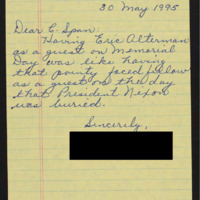 30 May 1995
Dear C Span:
Having Eric Alterman
as a guest on Memorial
Day was like having
that pointy faced fellow
as a guest on the day
that President Nixon
was buried.
Sincerely,